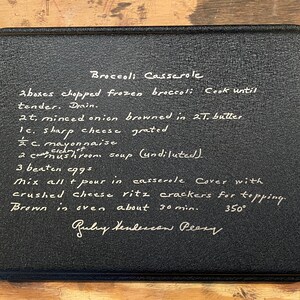 Broccoli Casserole
2 boxes chopped frozen broccoli Cook until
tender. Drain.
2 t. minced onion browned in 2 T. butter
1 c. sharp cheese grated
½ c mayonnaise
2 c mushroom soup (undiluted)
3 beaten eggs
Mix all + pour in casserole Cover with
crushed cheese ritz crackers for topping.
Brown in oven about 30 min. 350°
Ruby Henderson